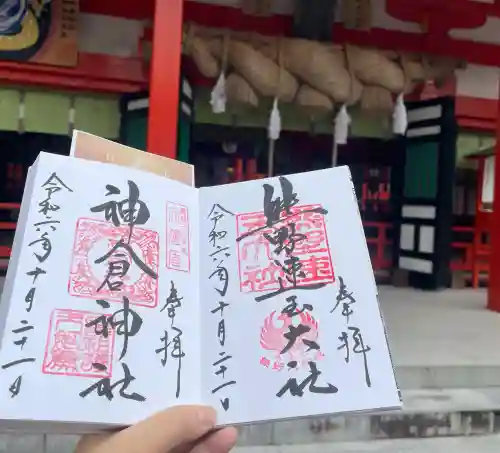 奉拝
熊野速玉大社
令和六年十月二十一日
奉拝
神倉神社
令和六年十月二十一日